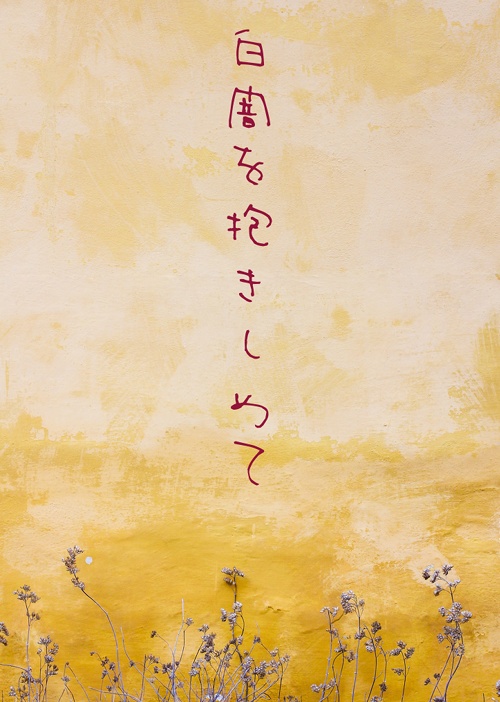 白闇を抱きしめて